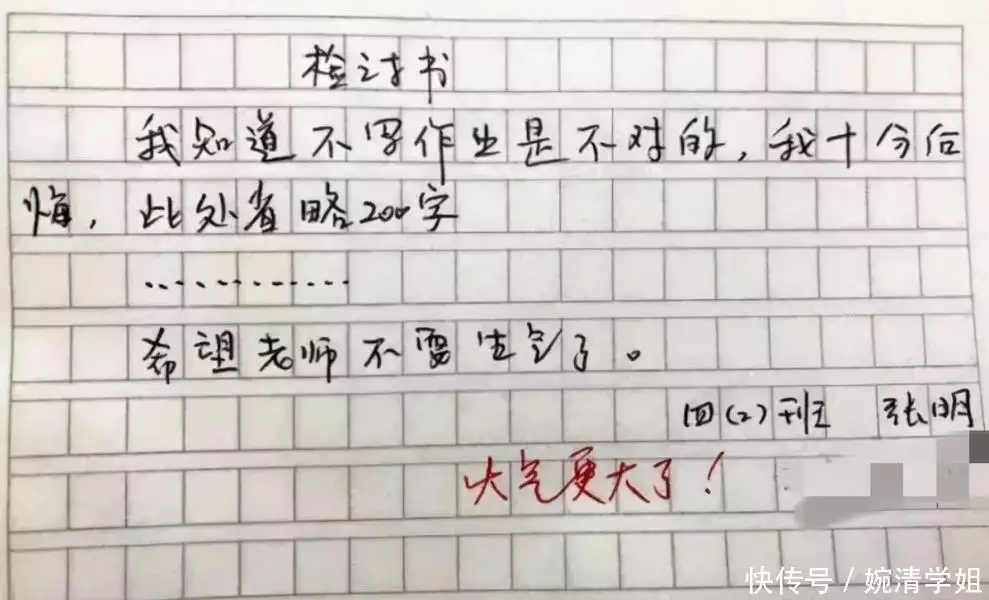 检讨书
我知道不写作业是不对的，我十今后
悔，此处省略200字
…………
希望老师不要生气了。
四(2)班 张明
火气更大了！
快传号 / 婉清学姐